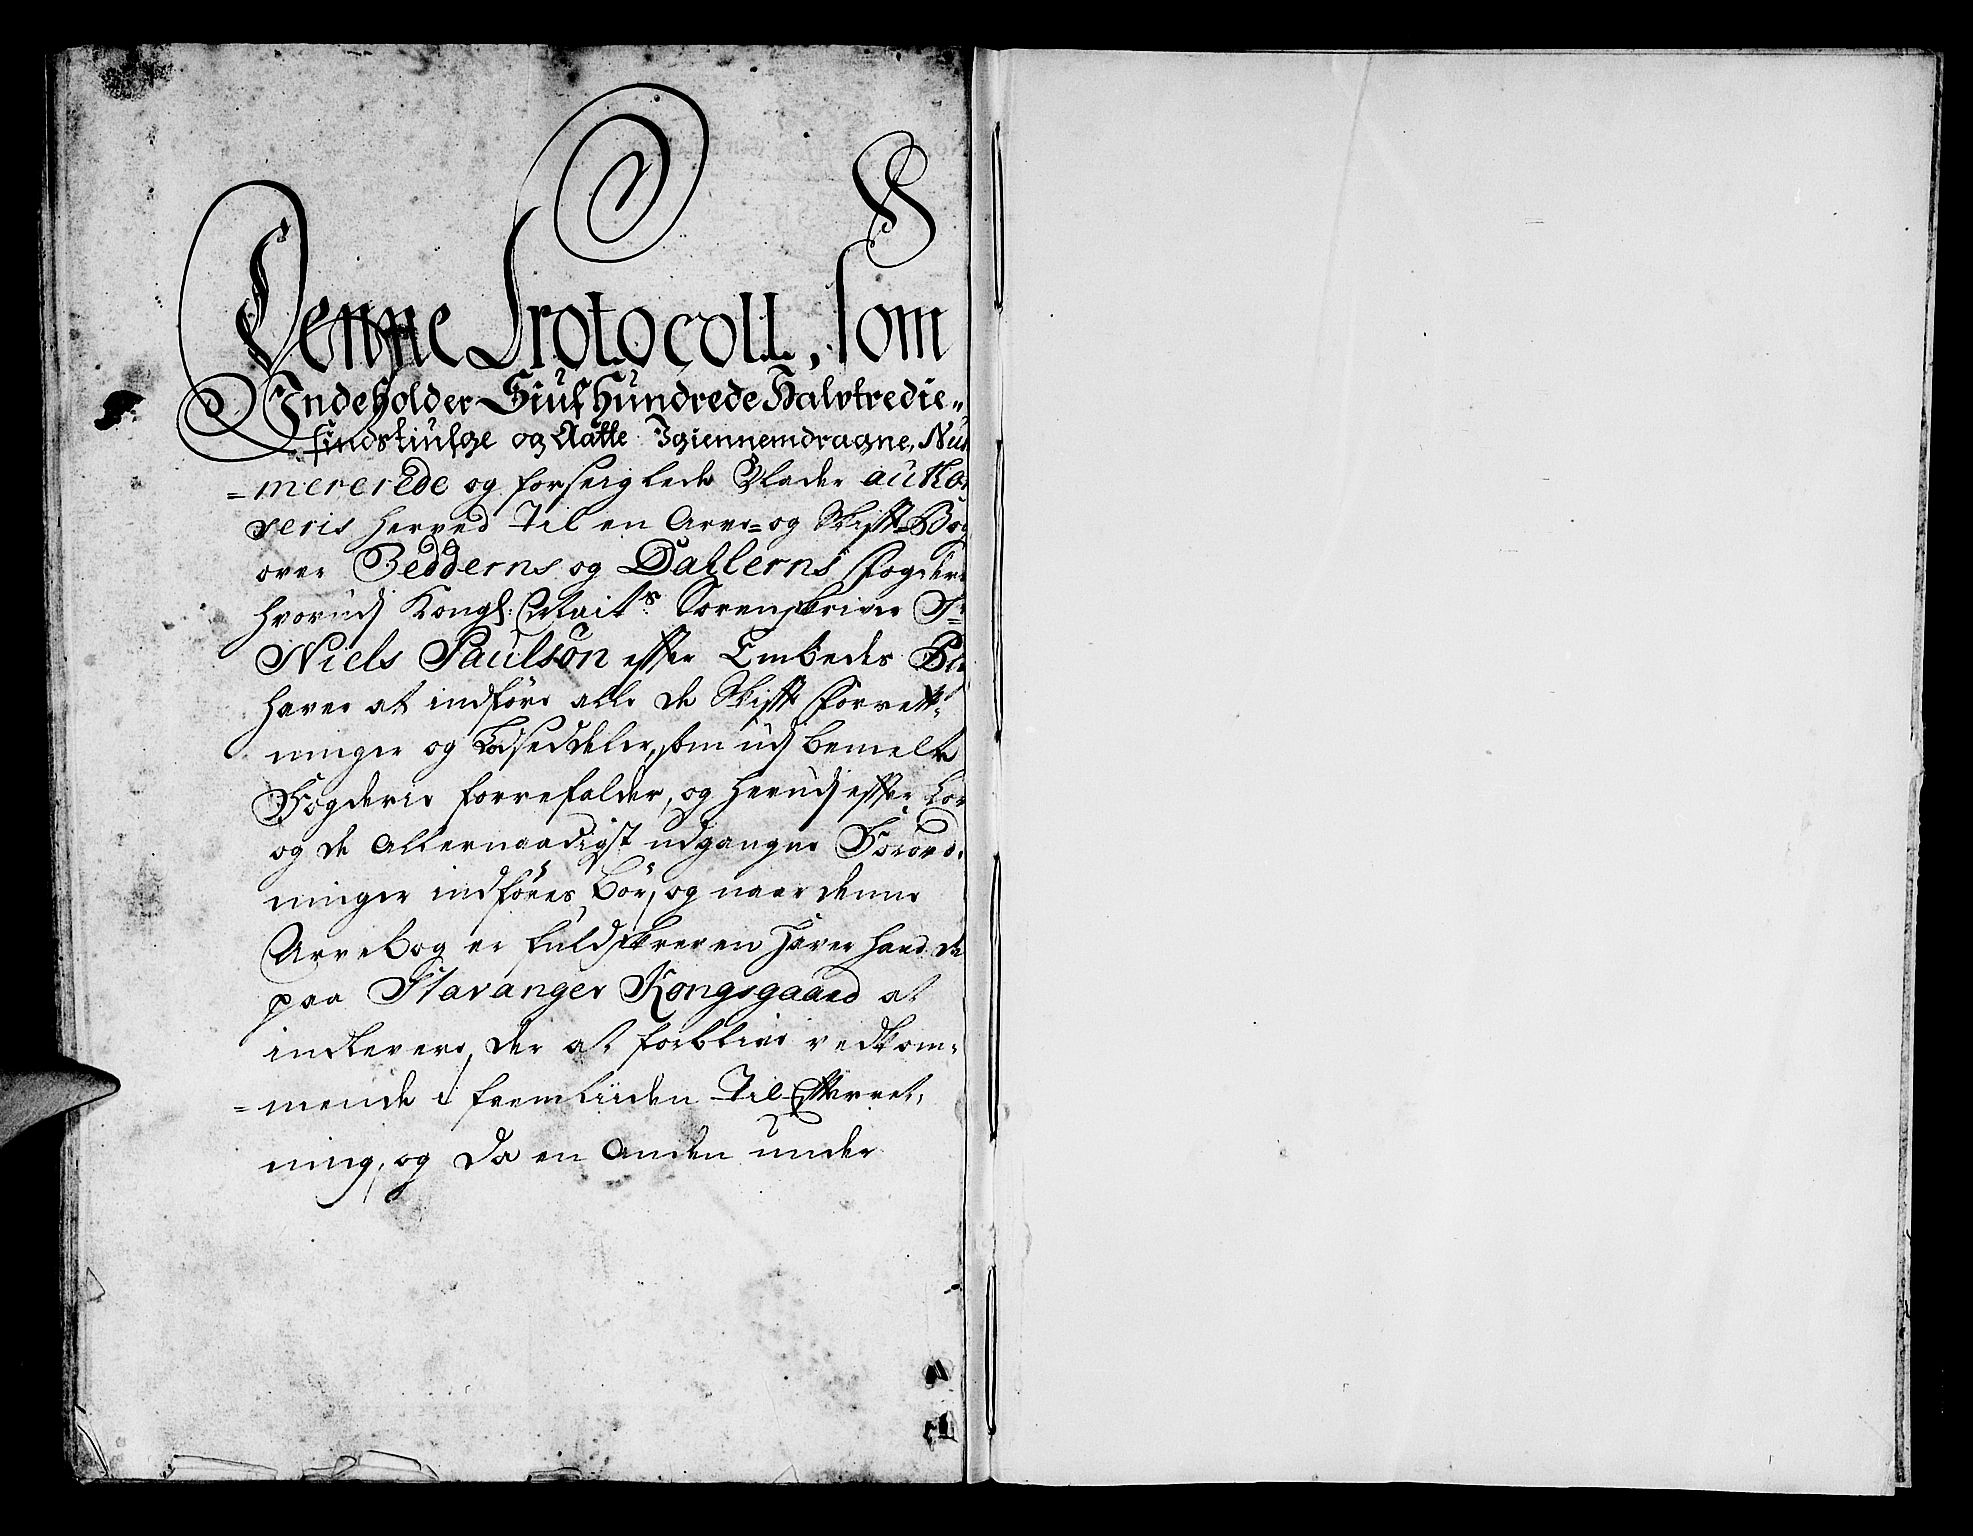 Denne Protocoll, som
Indeholder Siuf Hundrede Halvtredie„
sindstiufge og Aatte Igiennemdragne, Nu
=mererede og forseiglede Blader autho
reris herved Til en Arve= og Skifft=Bog
over Jedderns og Dallerns Fogderi
hvorudj Kongl: Mait.s Sorenskriver Sr
Niels Paulsøn effter Embedes
haver at indføre alle de Skiffte Forrett=
ninger og Lodseddeler, som udj bemelte
Fogderie forrefalder, og herudj effter Lov
og de Allernaadigst udgangne Forord=
ninger indføres bør, og naar denne
Arvebog er fuldskreven haver hand de
paa Stavanger Kongsgaard at
indlevere, der at forblive vedkom=
=mende i fremtiiden Til Efterret,
ning, og da en Anden under